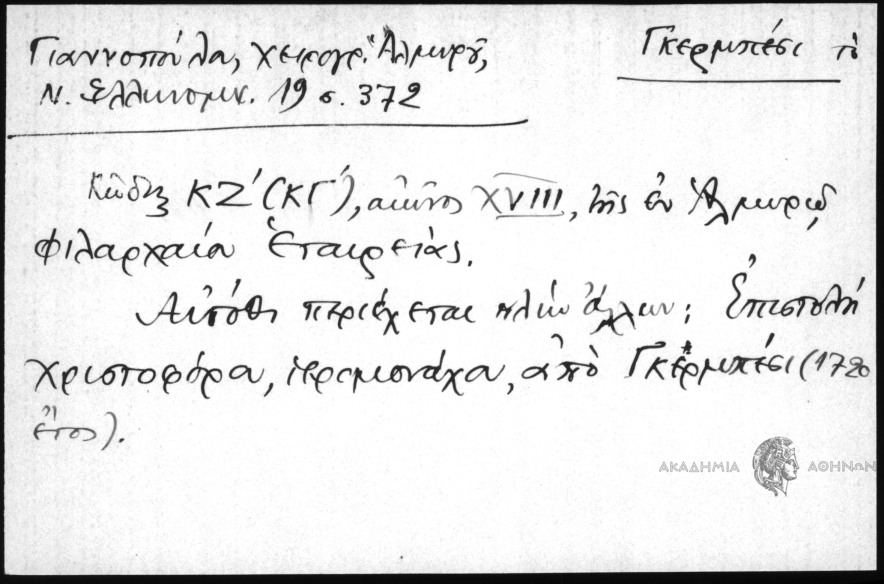 Γιαννοπούλου, χειρογρ. Ἁλμυροῦ,
Ν. Ἑλληνομν. 19 σ. 372
Γκερμπέσι τὸ
Κῶδιξ ΚΖ' (ΚΓ'), αἰῶνος XVIII, τῆς ἐν Ἁλμυρῷ
φιλαρχαίου Ἑταιρείας.
Αὐτόθι περιέχεται πλὴν ἄλλων; Ἐπιστολὴ
Χριστοφόρου, ἱερομονάχου, ἀπὸ Γκέρμπέσι (1720
ἔτος).
ΑΚΑΔΗΜΙΑ ΑΘΗΝΩΝ